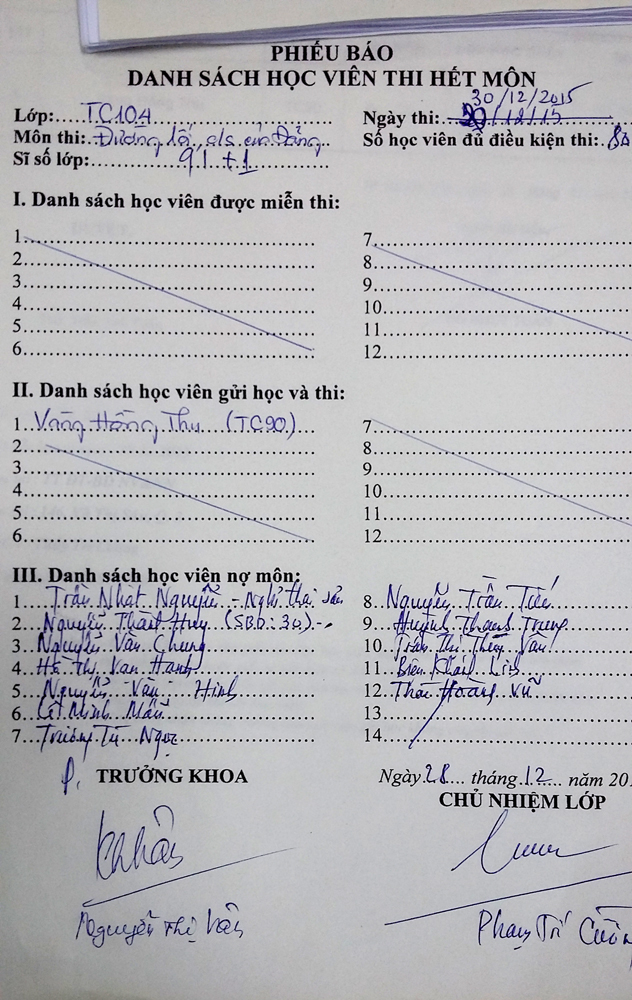 PHIẾU BÁO
DANH SÁCH HỌC VIÊN THI HẾT MÔN
30/12/2015
Lớp: TC104 Ngày thi:
Môn thi: Đường lối, cls của Đảng Số học viên đủ điều kiện thi:
Sĩ số lớp: 91 + 1
I. Danh sách học viên được miễn thi:
1 7
2 8
3 9
4 10
5 11
6 12
II. Danh sách học viên gửi học và thi:
1. Vàng Hồng Thu (TC90) 7
2 8
3 9
4 10
5 11
6 12
III. Danh sách học viên nợ môn:
1 Trần Nhật Nguyên - Nghỉ thai sản 8 Nguyễn Trần Tiến
2 Nguyễn Thành Huy (SBD: 30) 9 Huỳnh Thanh Trung
3 Nguyễn Văn Chung 10 Trần Thị Thúy Vân
4 Hồ Thị Vân Hanh 11 Khánh Linh
5 Nguyễn Văn Hinh 12 Thái Hoàng Vũ
6 Lê Minh Mẫn 13
7 Trương Tú Ngọc 14
P. TRƯỞNG KHOA Ngày 28 tháng 12 năm 20
CHỦ NHIỆM LỚP
Nguyễn Thị Vân Phạm Trí